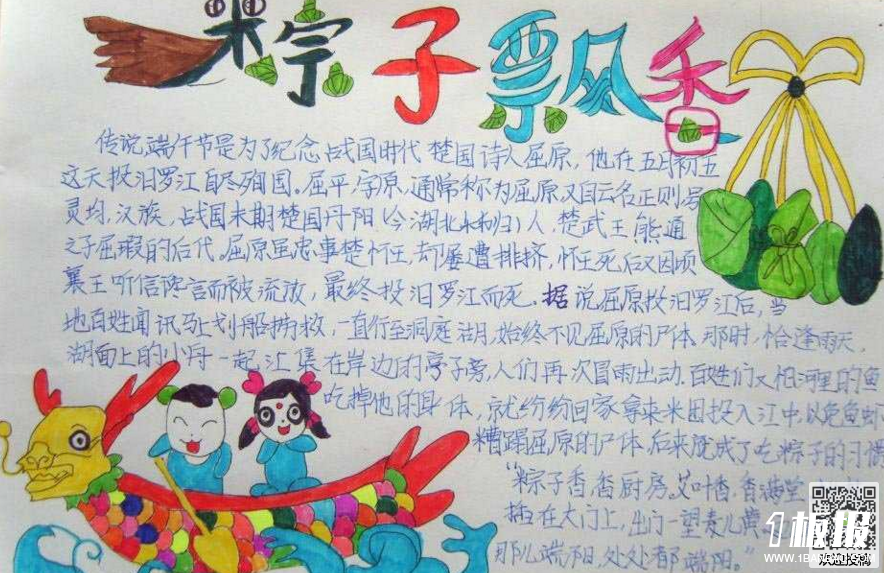 粽子飘香
传说,端午节是为了纪念战国时代楚国诗人屈原,他在五月初五
这天投汨罗江自尽殉国。屈平,字原,通常称为屈原,又自云名正则,号
灵均,汉族,战国末期楚国丹阳(今湖北秭归)人,楚武王熊通
之子屈瑕的后代。屈原虽忠事楚怀王,却屡遭排挤,怀王死后又因顷
襄王听信谗言而被流放,最终投汨罗江而死。据说屈原投汨罗江后,当
地百姓闻讯马上划船捞救,一直行至洞庭湖,始终不见屈原的尸体,那时,恰逢雨天,
湖面上的小舟一起汇集在岸边的亭子旁,人们再次冒雨出动,百姓们又怕河里的鱼
吃掉他的身体,就纷纷回家拿来米团投入江中,以免鱼虾
糟蹋屈原的尸体,后来就成了吃粽子的习惯
"粽子香,香厨房。艾叶香,香满堂
插在大门上,出门一望麦儿黄
那儿端阳,处处都端阳。"
1板报
WWW.1B
欢迎投稿